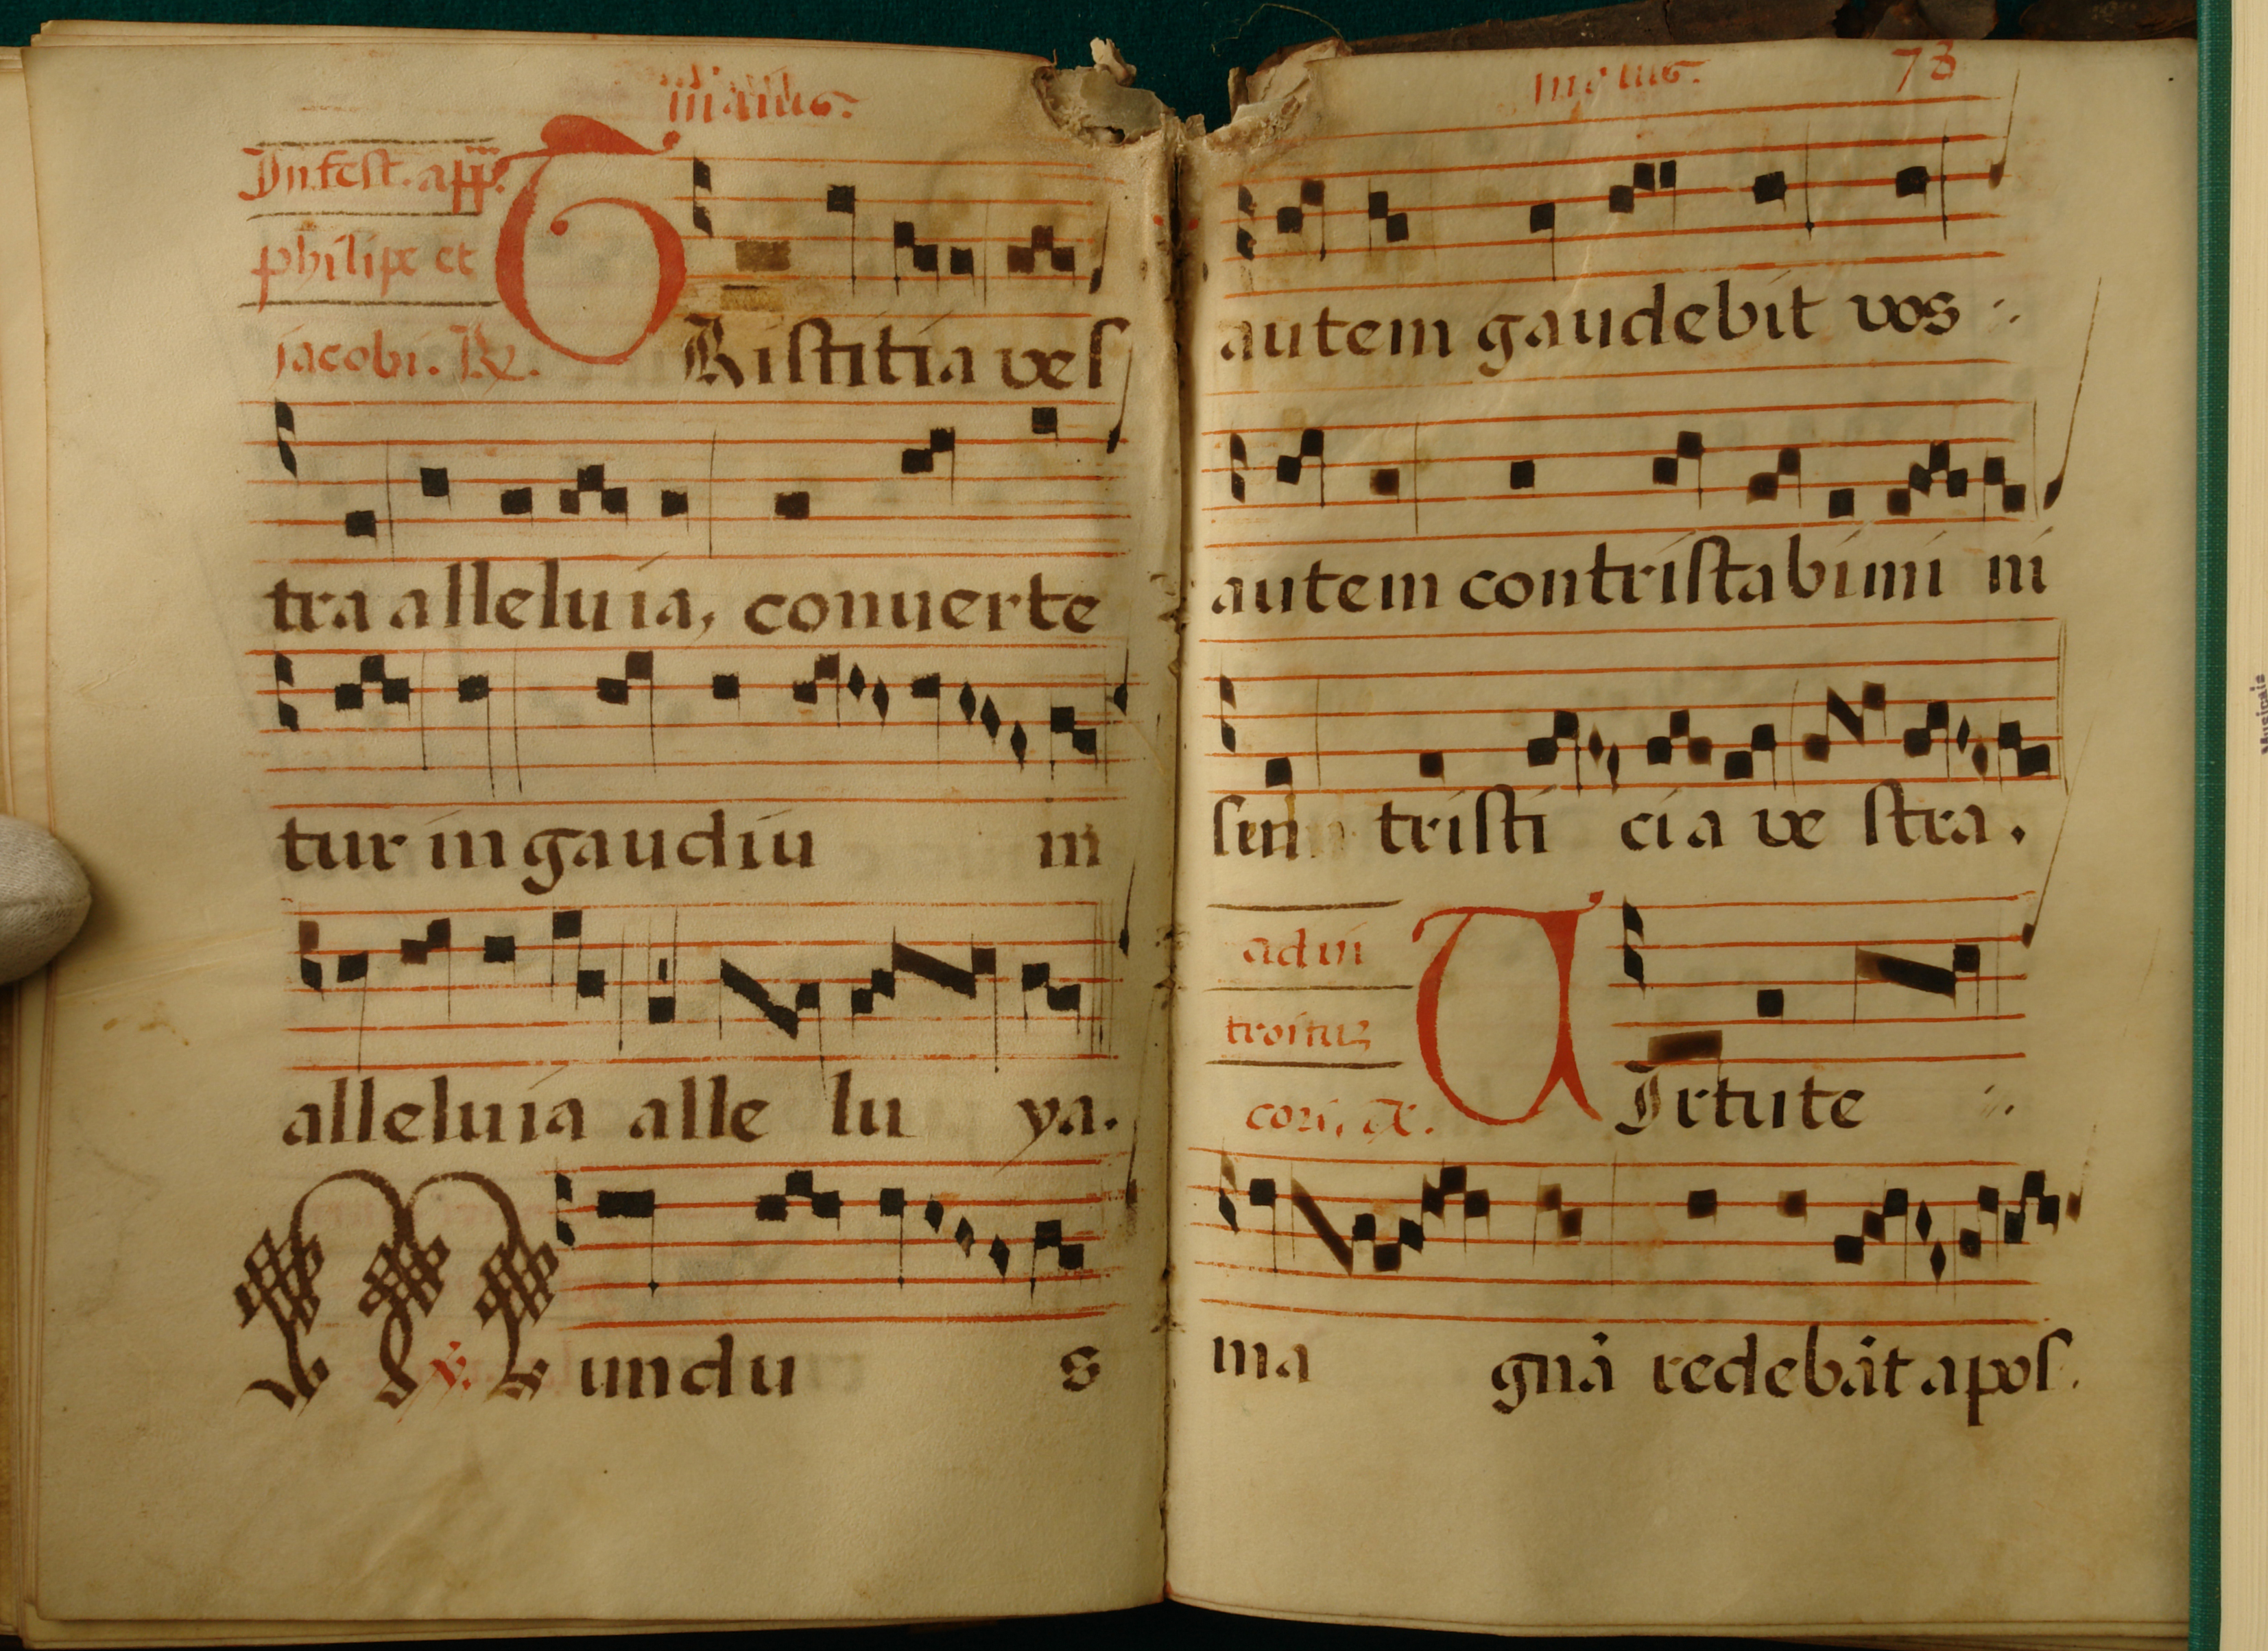 maius.
In fest. app.
philipe et
jacobi. R.
TRistitia ves
tra alleluia, conuerte
tur in gaudiu m
alleluia alle lu ya.
M v. undu s
maius. 73
autem gaudebit vos
autem contristabimi ni
sen tristi cia ve stra.
ad in
troituz
cori, R.
VIrtute
ma gnā redebāt apos.
Musicais